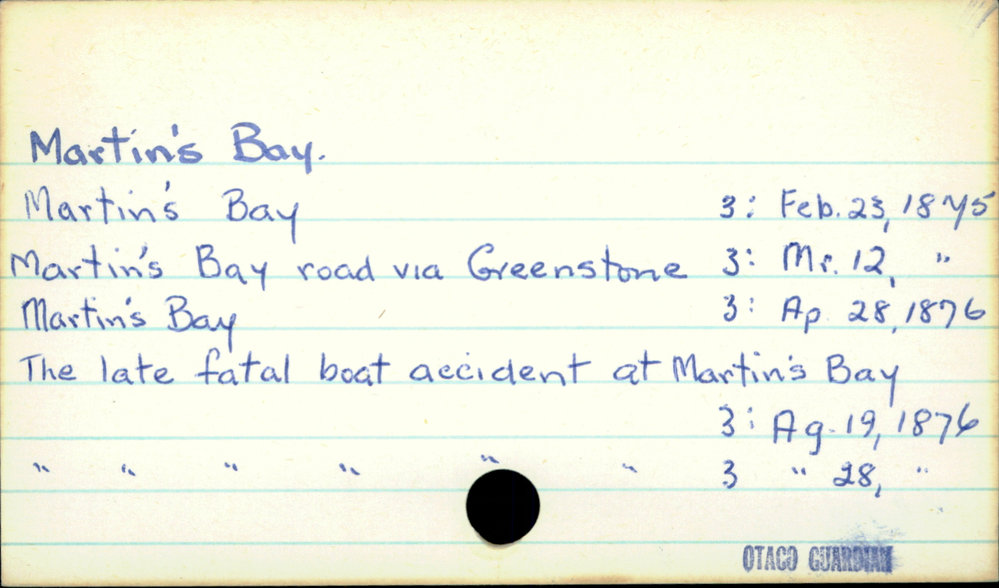 Martin's Bay.
Martin's Bay 3: Feb. 23, 1875
Martin's Bay road via Greenstone 3: Mr. 12, "
Martin's Bay 3: Ap 28, 1876
The late fatal boat accident at Martin's Bay
3: Ag. 19, 1876
" " " " " " 3 " 28, "
OTAGO GUARDIAN